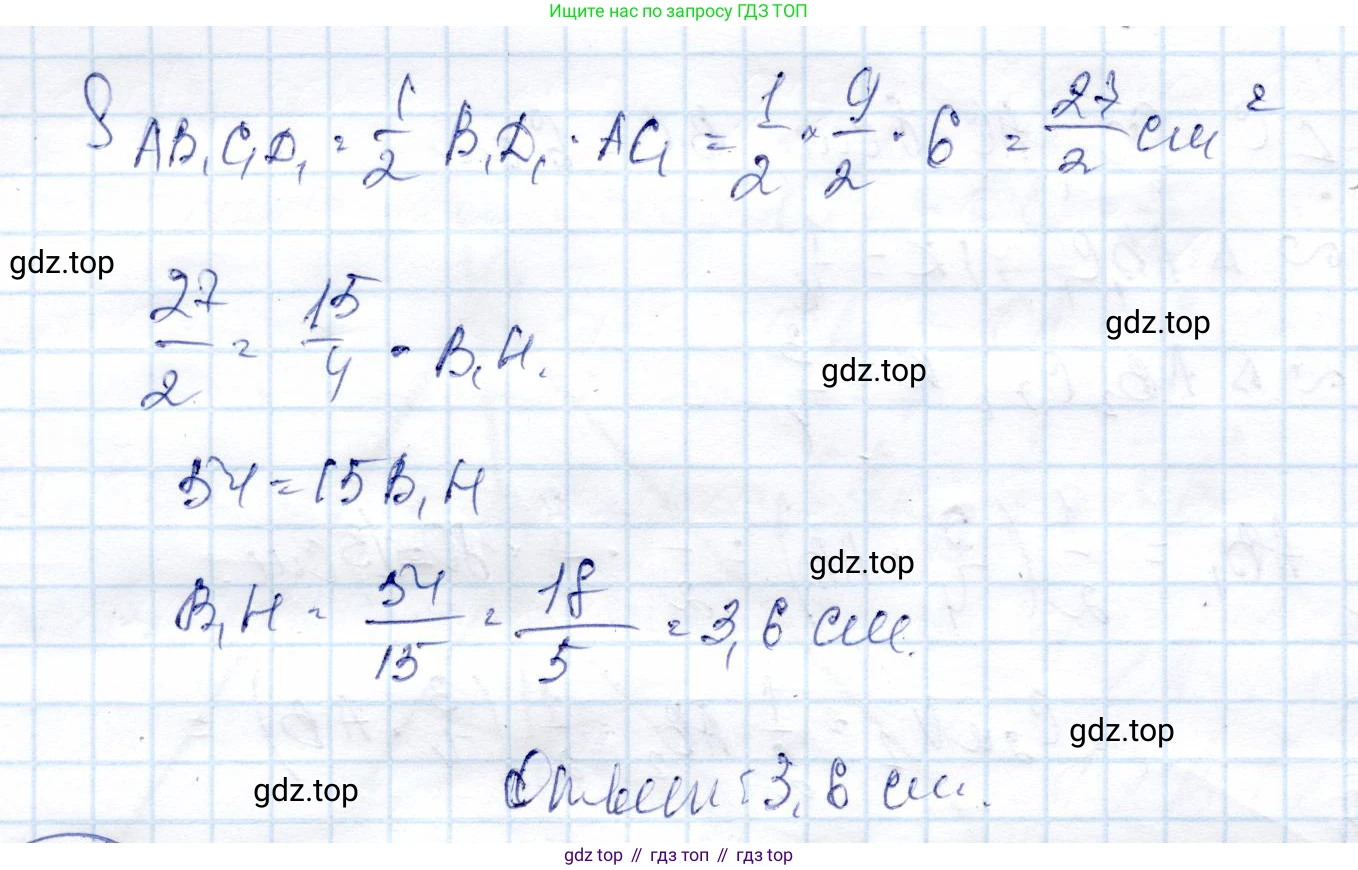 Ищите нас по запросу ГДЗ ТОП
S AB₁C₁D₁ = 1/2 B₁D₁ · AC₁ = 1/2 · 9/2 · 6 = 27/2 см²
gdz.top
27/2 = 15/4 · B₁H.
gdz.top
gdz.top
54 = 15 B₁H
gdz.top
B₁H = 54/15 = 18/5 = 3,6 см.
gdz.top
gdz.top
Ответ: 3,6 см.
gdz top // гдз топ // gdz top